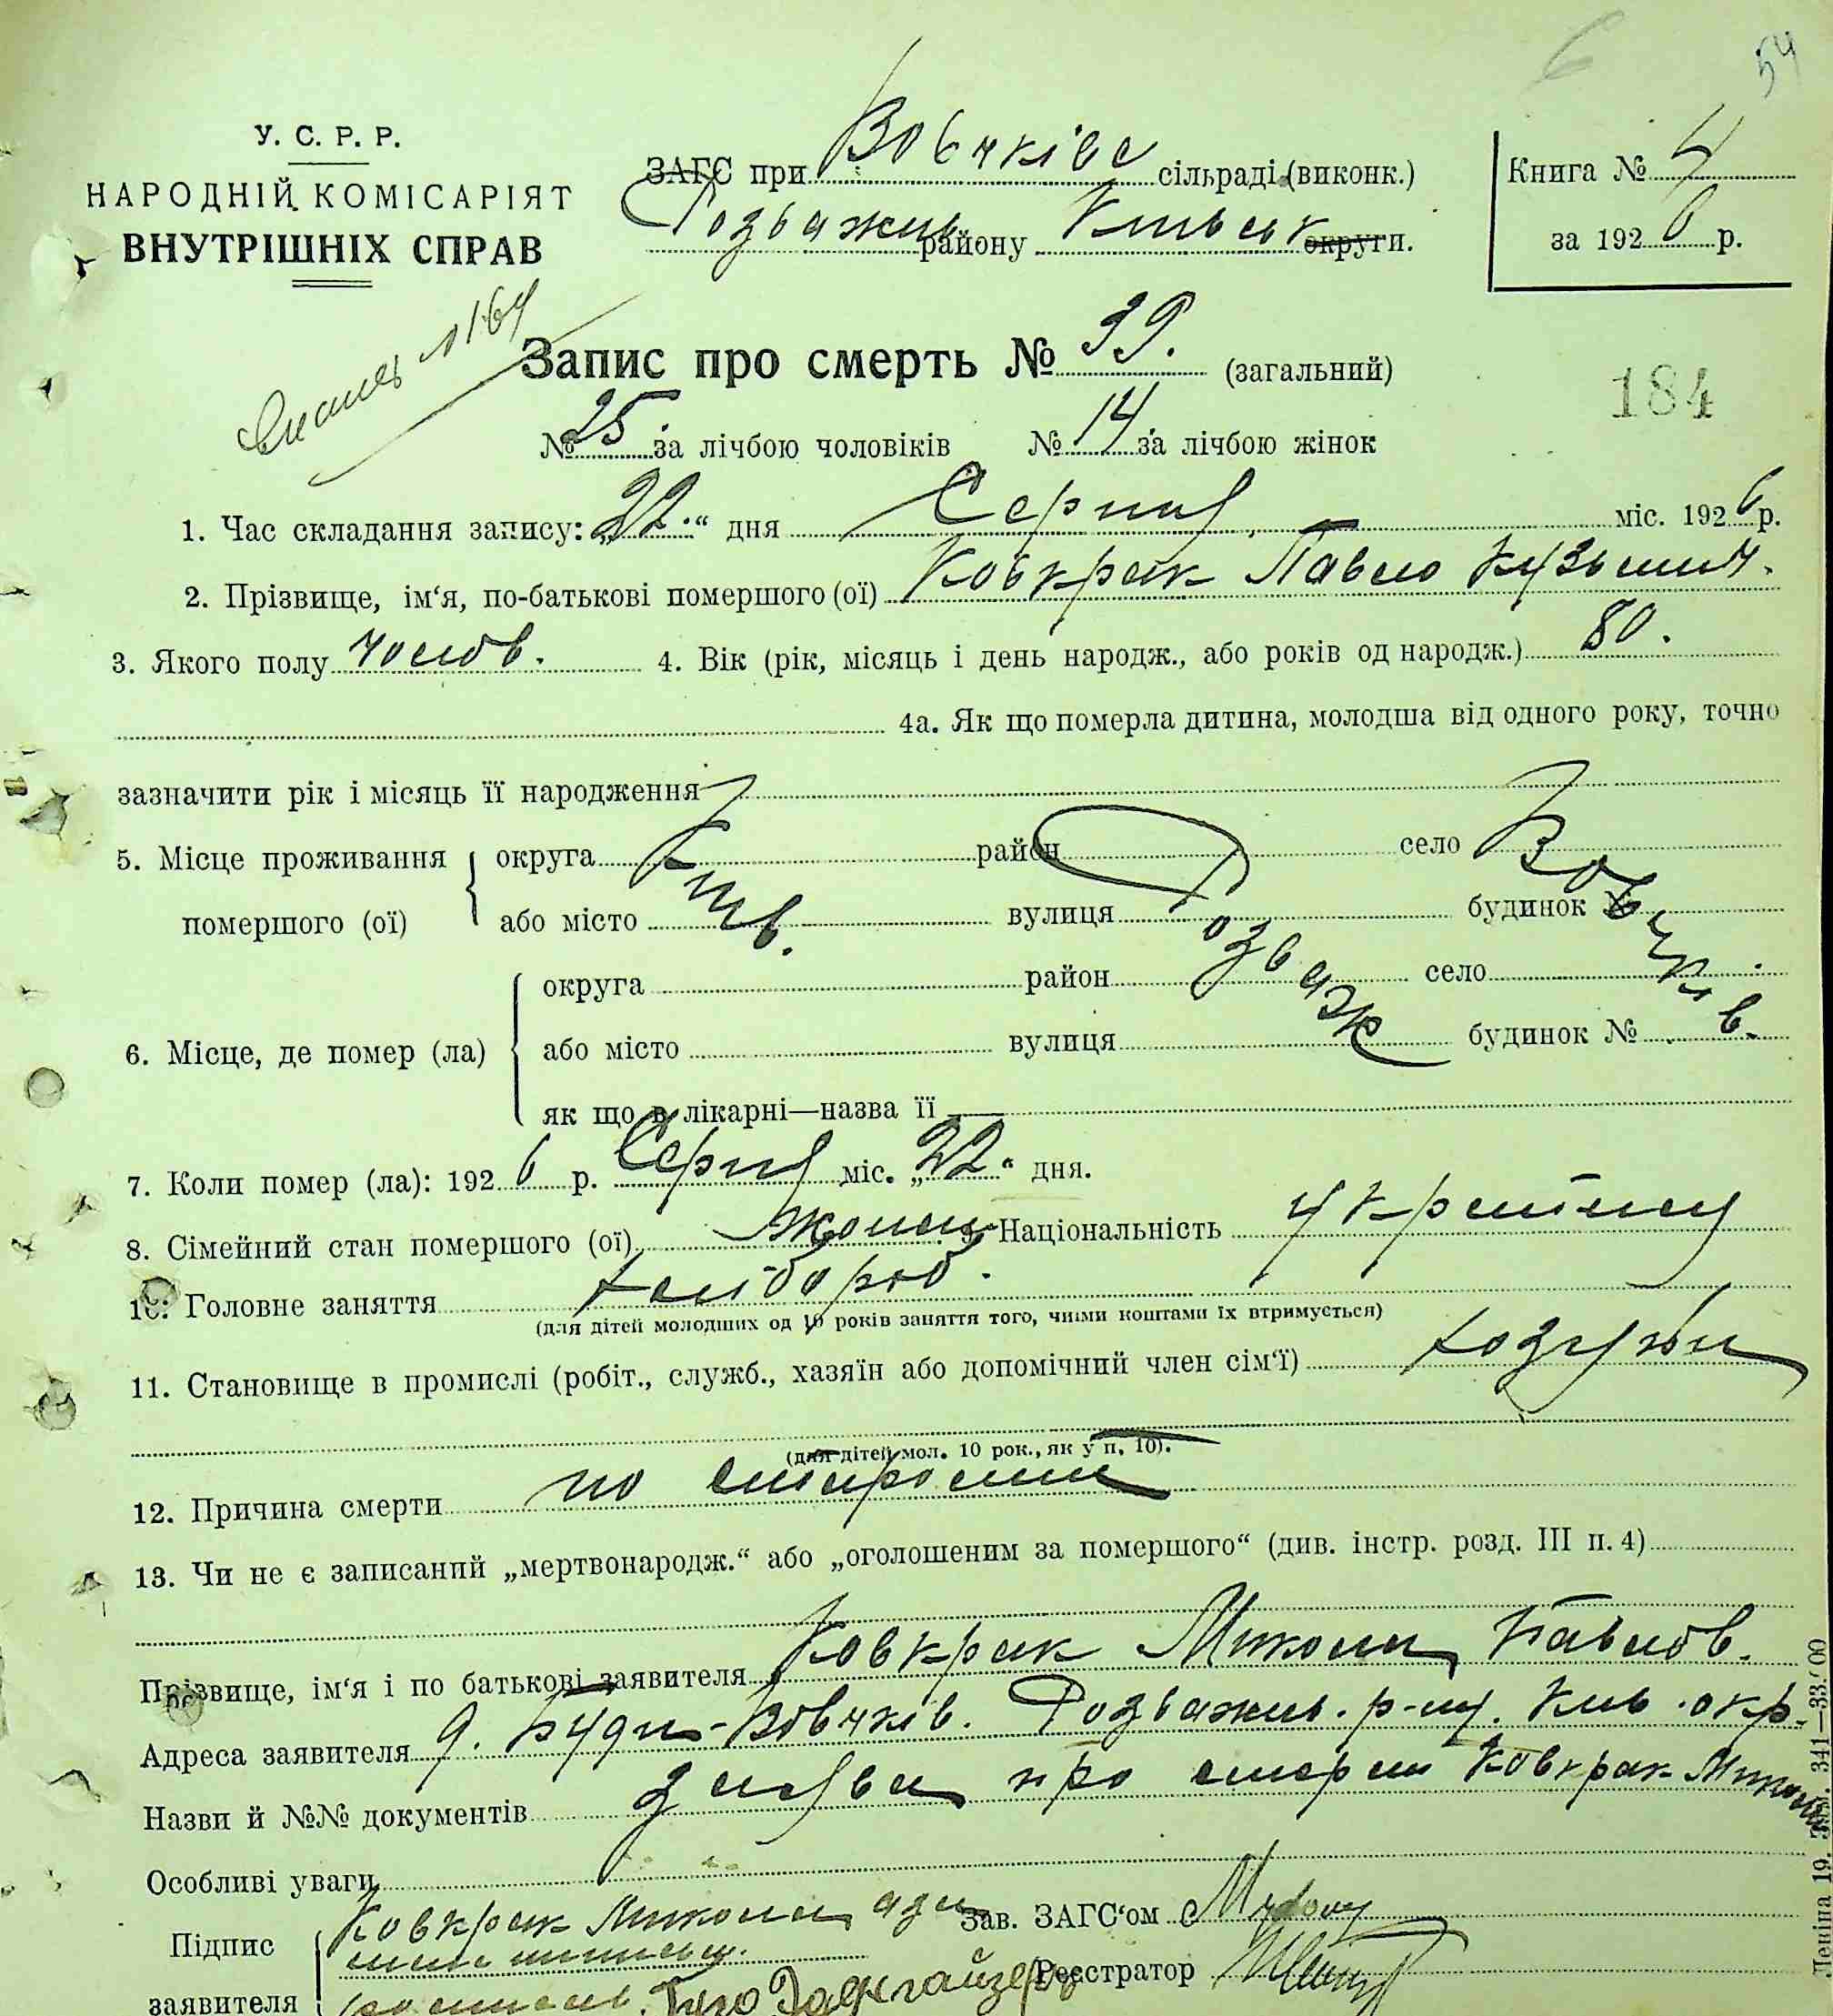 6 54
У. С. Р. Р.
НАРОДНІЙ КОМІСАРІЯТ
ВНУТРІШНІХ СПРАВ
ЗАГС при Вовчківс сільраді (виконк.)
Розважив району Київськ округи.
Книга № 4
за 1926 р.
№ 164
Запис про смерть № 39. (загальний)
184
№ 25 за лічбою чоловіків № 14 за лічбою жінок
1. Час складання запису: „22“ дня Серпня міс. 1926 р.
2. Прізвище, ім‘я, по-батькові помершого (ої) Ковкрак Павло Кузьмич.
3. Якого полу чолов. 4. Вік (рік, місяць і день народж., або років од народж.) 80.
4а. Як що померла дитина, молодша від одного року, точно
зазначити рік і місяць її народження
5. Місце проживання помершого (ої) округа Київ. район Розваж село Вовчків.
або місто вулиця будинок №
6. Місце, де помер (ла) округа район село
або місто вулиця будинок №
як що в лікарні—назва її —
7. Коли помер (ла): 1926 р. Серпня міс. „22“ дня.
8. Сімейний стан помершого (ої) 9. Національність українец
10. Головне заняття хлібороб.
(для дітей молодших од 10 років заняття того, чиїми коштами їх втримується)
11. Становище в промислі (робіт., служб., хазяїн або допомічний член сім‘ї)
(для дітей мол. 10 рок., як у п. 10).
12. Причина смерти по старости
13. Чи не є записаний „мертвонародж.“ або „оголошеним за помершого“ (див. інстр. розд. III п. 4)
Прізвище, ім‘я і по батькові заявителя Ковкрак Микола Павлов.
Адреса заявителя д. Буда-Вовчків. Розважив. р-ну. Київ. окр.
Назви й №№ документів заява про смерть Ковкрак Микола
Особливі уваги
Підпис Ковкрак Микола Зав. ЗАГС‘ом
Реєстратор
заявителя
Леніна 19. Зам. 341—33.000